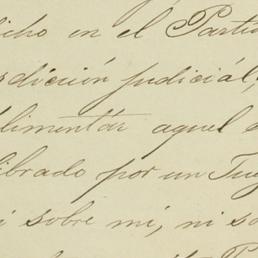 icho en el Partid
rdicción judicial,
limentár aquel e
librado por un Juz
i sobre mi, ni so